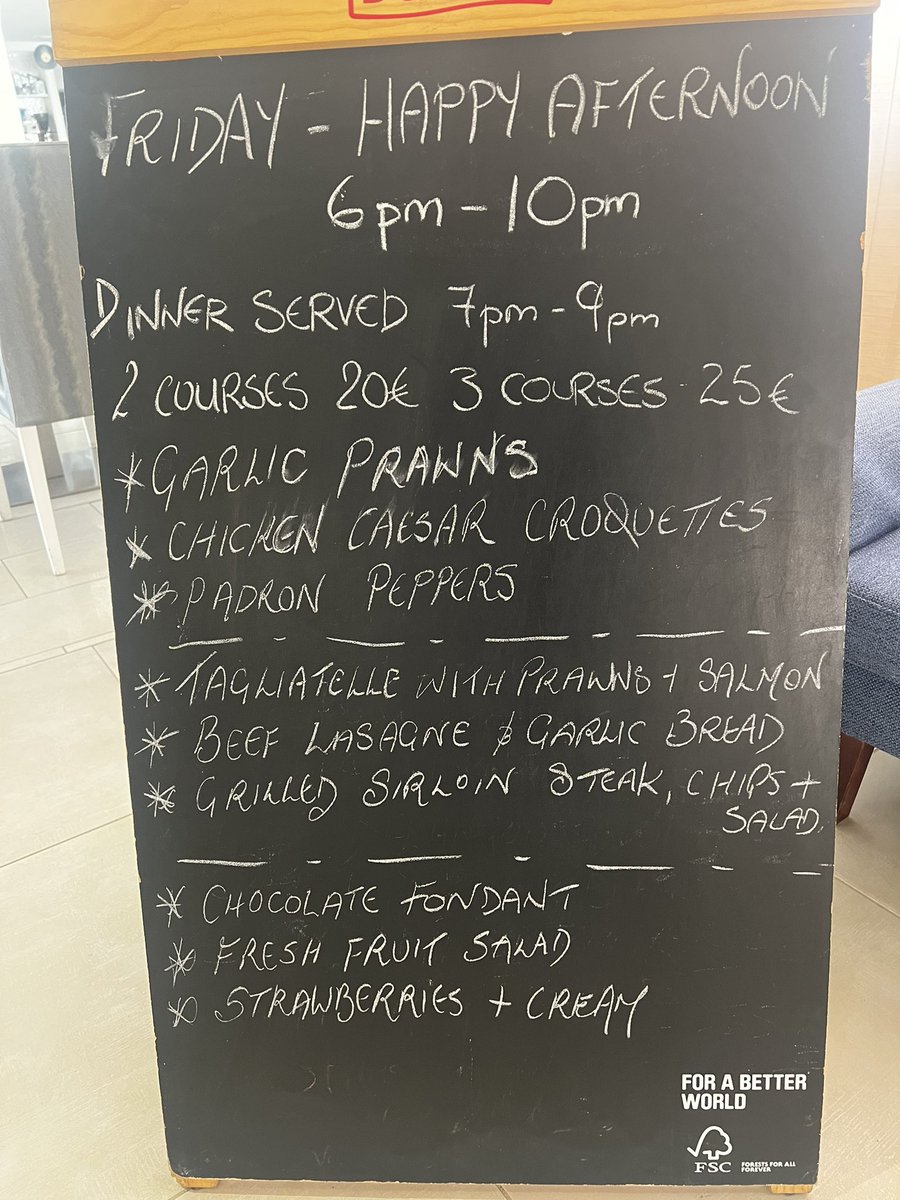 FRIDAY - HAPPY AFTERNOON
6pm - 10pm
DINNER SERVED 7pm - 9pm
2 COURSES 20€ 3 COURSES - 25€
* GARLIC PRAWNS
* CHICKEN CAESAR CROQUETTES
* PADRON PEPPERS
* TAGLIATELLE WITH PRAWNS + SALMON
* BEEF LASAGNE & GARLIC BREAD
* GRILLED SIRLOIN STEAK, CHIPS +
SALAD
* CHOCOLATE FONDANT
* FRESH FRUIT SALAD
* STRAWBERRIES + CREAM
FOR A BETTER
WORLD
FSC
FORESTS FOR ALL
FOREVER